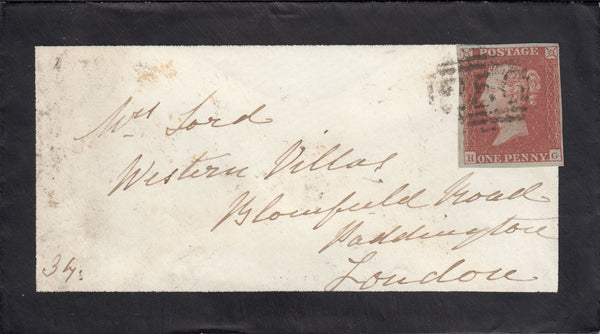 POSTAGE
H ONE PENNY G
Mrs Lord
Western Villas
Blomfield Road
Paddington
London
34: